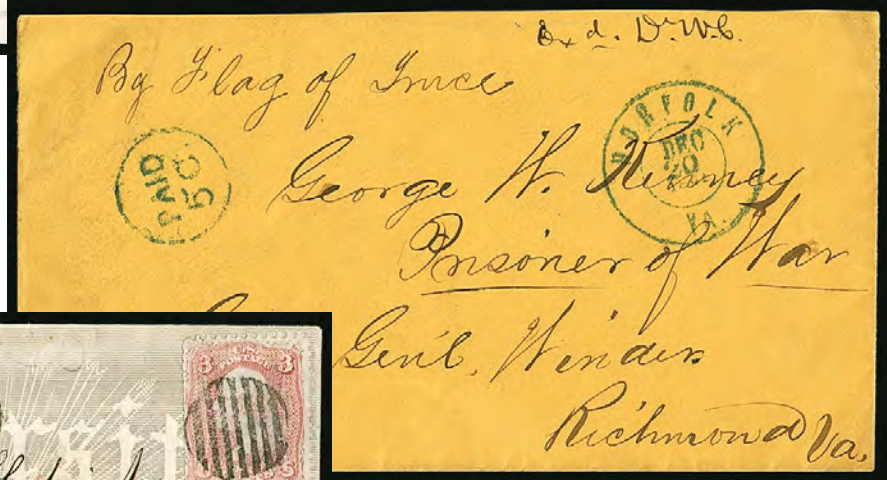 Exd. Dr. W.C.
By Flag of Truce
PAID
5 C
NORFOLK
DEC
VA.
George W. Kinney
Prisoner of War
Genl. Winder
Richmond Va.
3 3